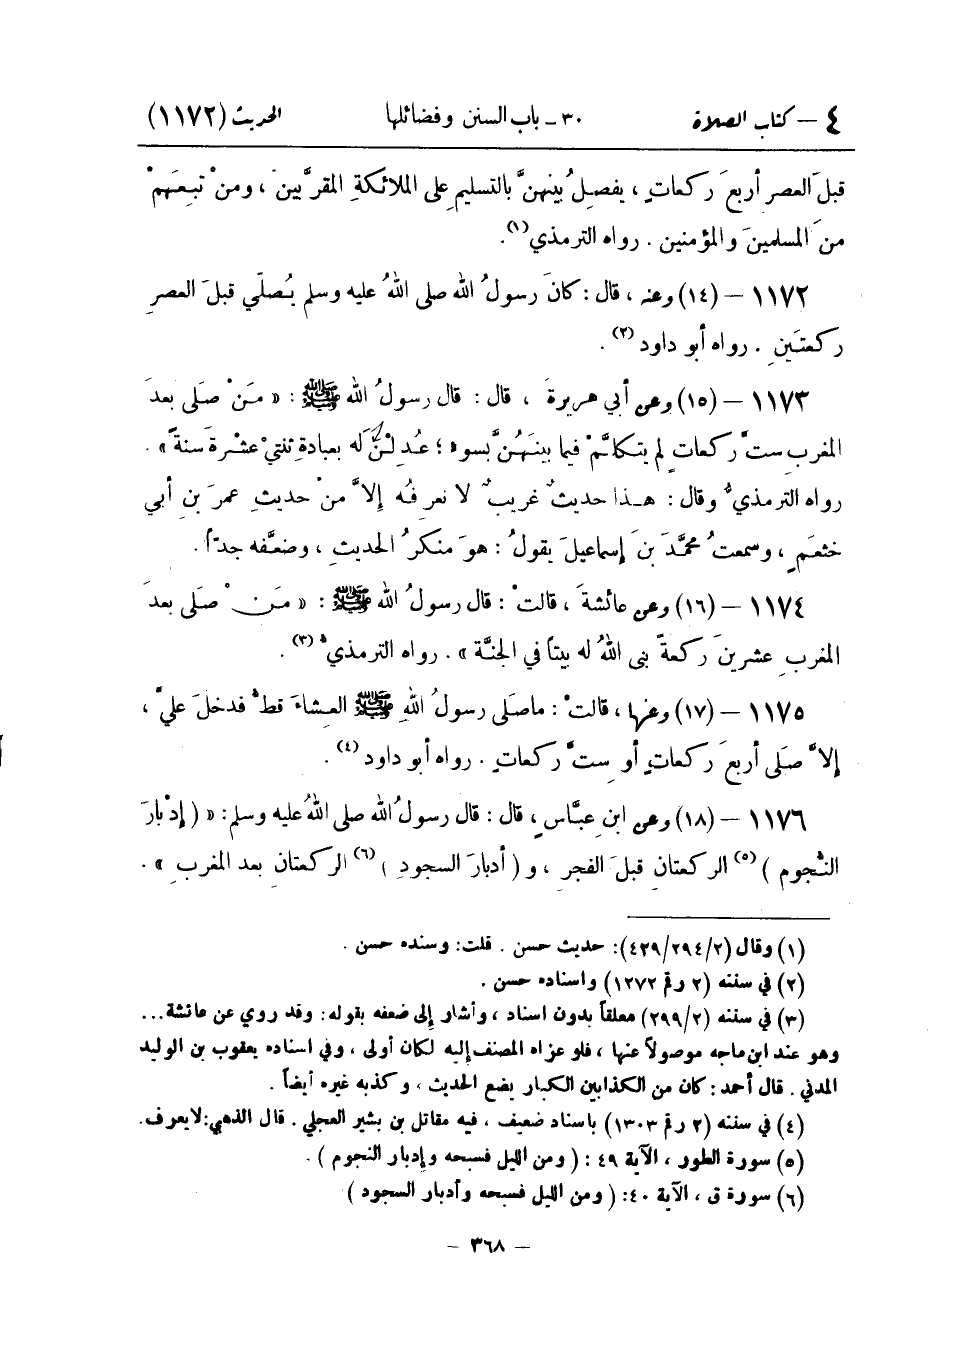 ٤ – كتاب الصلاة ٣٠ ـ باب السنن وفضائلها الحديث (١١٧٢)
قبلَ العصر أربعَ ركعاتٍ ، يفصِلُ بينهنَّ بالتسليمِ على الملائكةِ المقرَّبينَ ، ومنْ تبِعَهمْ
منَ المسلمينَ والمؤمنين . رواه الترمذي(١).
١١٧٢ – (١٤) وعنه ، قال : كانَ رسولُ اللهِ صلى اللهُ عليه وسلم يُصلّي قبلَ العصرِ
ركعتَينِ . رواه أبو داود(٢) .
١١٧٣ – (١٥) وعن أبي هريرةَ ، قال : قال رسولُ اللهِ ﷺ : « مَنْ صَلى بعدَ
المغربِ ستَّ ركعاتٍ لم يتكلَّمْ فيما بينَهُنَّ بسوءٍ ؛ عُدِلْنَ له بعبادةِ ثنتيْ عشْرةَ سنةً » .
رواه الترمذيُّ وقال : هـذا حديثٌ غريبٌ لا نعرفُه إلاَّ منْ حديثِ عمرَ بنِ أبي
خثعمٍ ، وسمعتُ محمَّدَ بنَ إسماعيلَ يقولُ : هوَ منكرُ الحديثِ ، وضعَّفه جدّاً .
١١٧٤ – (١٦) وعن عائشةَ ، قالتْ : قال رسولُ اللهِ ﷺ : « مَنْ صَلى بعدَ
المغربِ عشرينَ ركعةً بنى اللهُ له بيتاً في الجنَّة » . رواه الترمذيُّ(٣) .
١١٧٥ – (١٧) وعنها ، قالتْ : ماصَلى رسولُ اللهِ ﷺ العِشاءَ قطُّ فدخلَ عليَّ ،
إلاَّ صَلى أربعَ ركعاتٍ أو ستَّ ركعاتٍ . رواه أبو داود(٤) .
١١٧٦ – (١٨) وعن ابنِ عبَّاسٍ ، قال : قال رسولُ اللهِ صلى اللهُ عليه وسلم : « ( إدْبارَ
النُّجومِ )(٥) الركعتانِ قبلَ الفجرِ ، و ( أدبارَ السجودِ )(٦) الركعتانِ بعد المغربِ » .
(١) وقال (٢/٢٩٤/٤٢٩): حديث حسن . قلت: وسنده حسن .
(٢) في سننه (٢ رقم ١٢٧٢) واسناده حسن .
(٣) في سننه (٢/٢٩٩) معلقاً بدون اسناد ، وأشار إلى ضعفه بقوله: وقد روي عن عائشة...
وهو عند ابن ماجه موصولاً عنها ، فلو عزاه المصنف إليه لكان أولى ، وفي اسناده يعقوب بن الوليد
المدني . قال أحمد : كان من الكذابين الكبار يضع الحديث ، وكذبه غيره أيضاً .
(٤) في سننه (٢ رقم ١٣٠٣) باسناد ضعيف ، فيه مقاتل بن بشير العجلي . قال الذهبي: لايعرف.
(٥) سورة الطور ، الآية ٤٩ : ( ومن الليل فسبحه وإدبار النجوم ) .
(٦) سورة ق ، الآية ٤٠: ( ومن الليل فسبحه وأدبار السجود )
– ٣٦٨ –